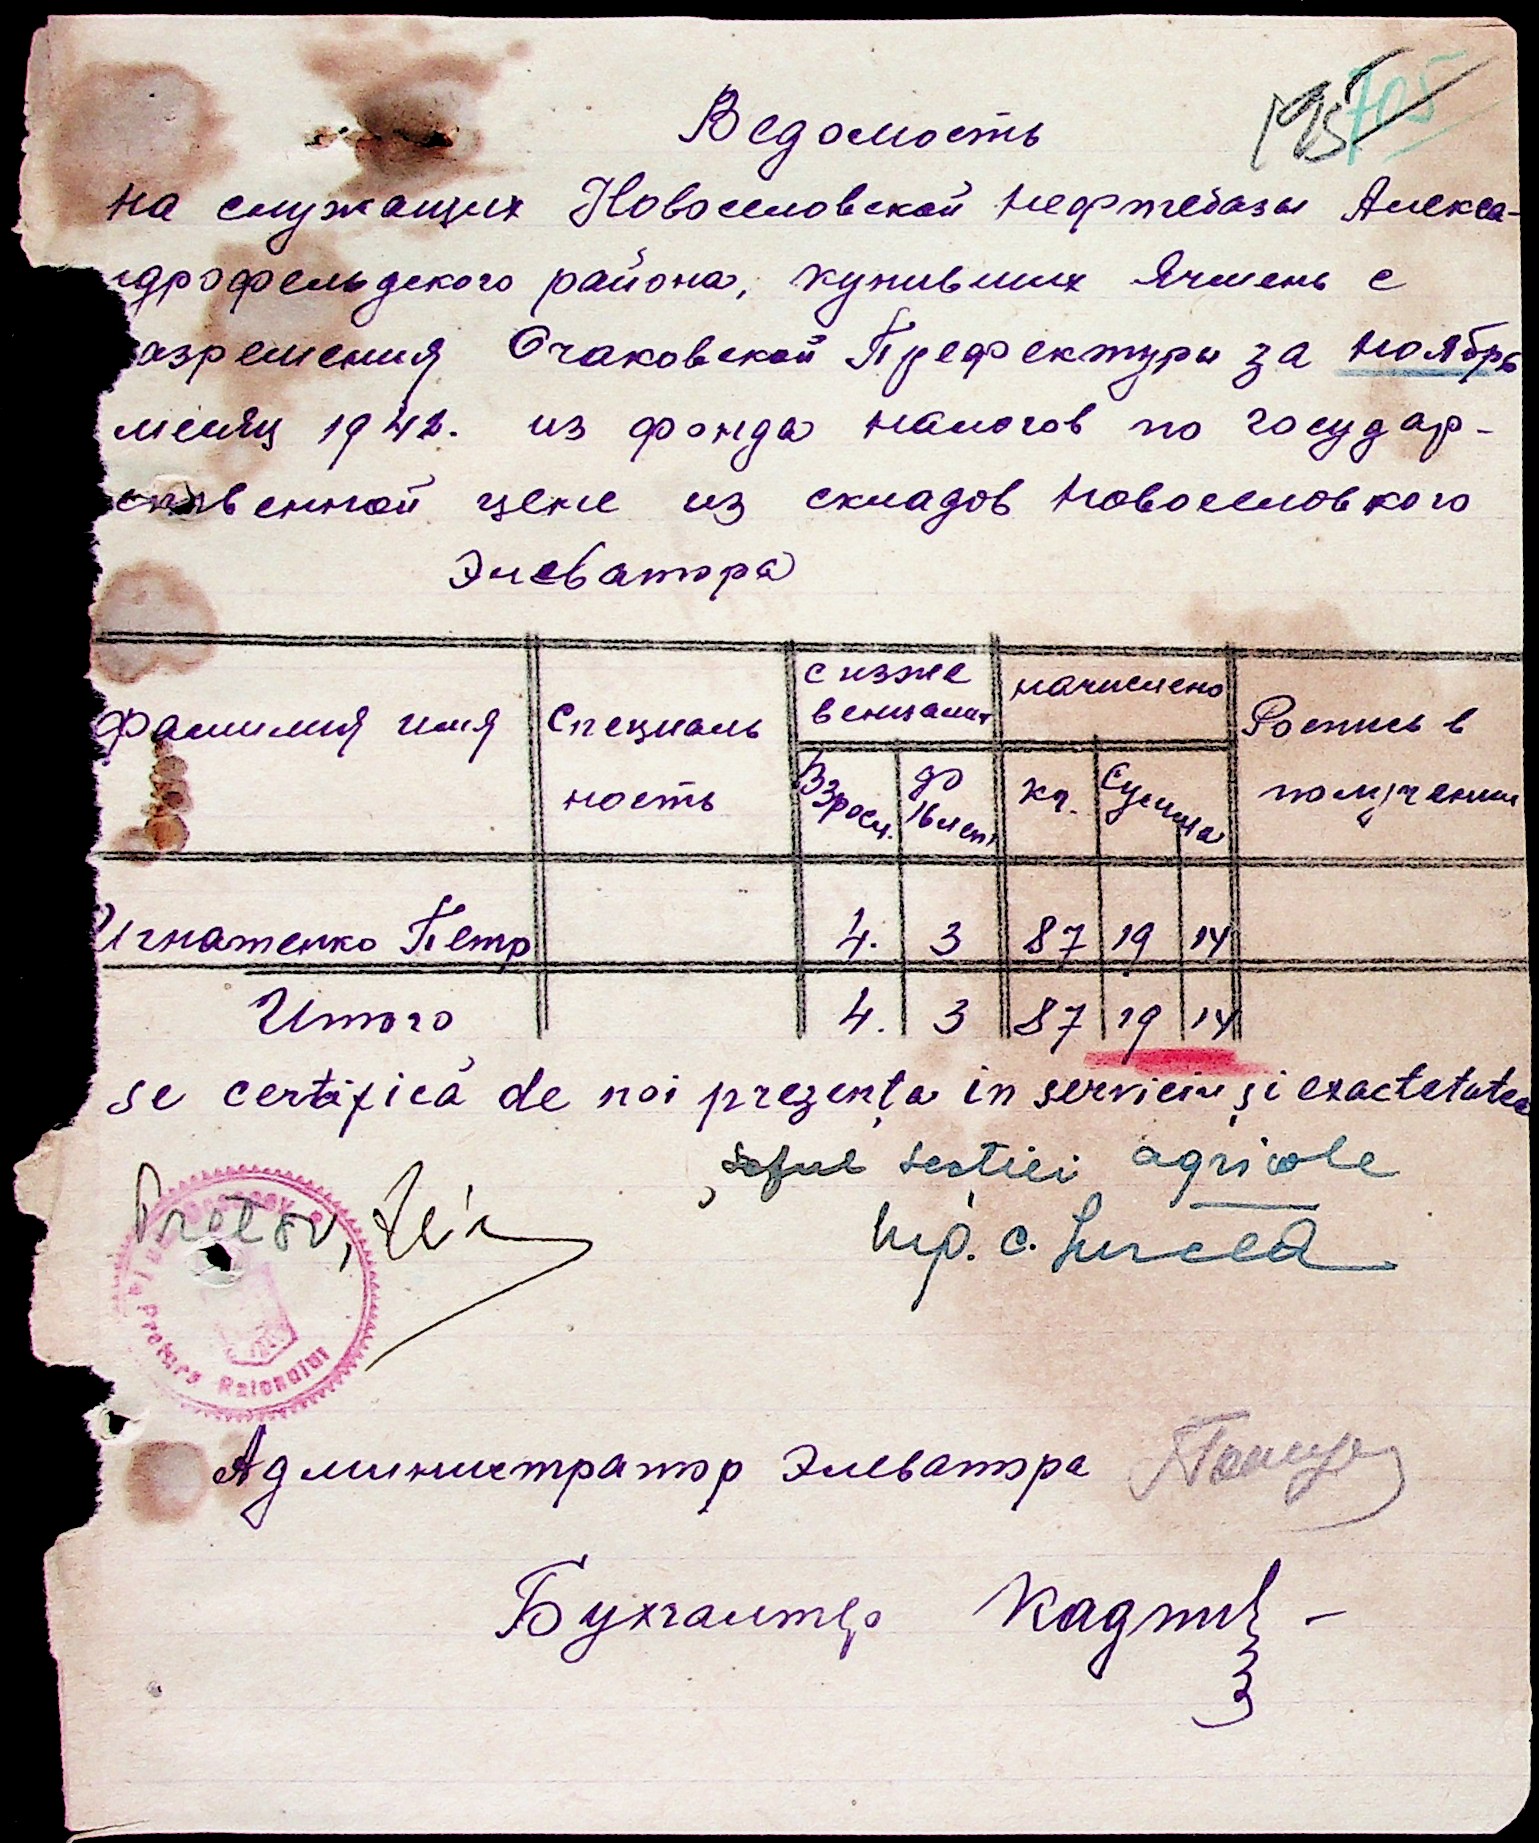 195 705
Ведомость
на служащих Новоселовской нефтебазы Алекса-
ндрофельдского района, купивших ячмень с
азрешения Очаковской Префектуры за ноябрь
месяц 1942. из фонда налогов по государ-
ственной цене из складов Новоселовкого
Элеватора
Фамилия имя Специаль ность с иэже венцами Взросл. до 16 лет начислено кг. Сумма Роспись в получении
Игнатенко Петр 4. 3 87 19 14
Итого 4. 3 87 19 14
se certifică de noi prezența in serviciu și exactetatea
Pretor, șeful secției agricole
Inp. c. Lurcea
Pretura Raionului
Администратор Элеватора
Бухгалтер